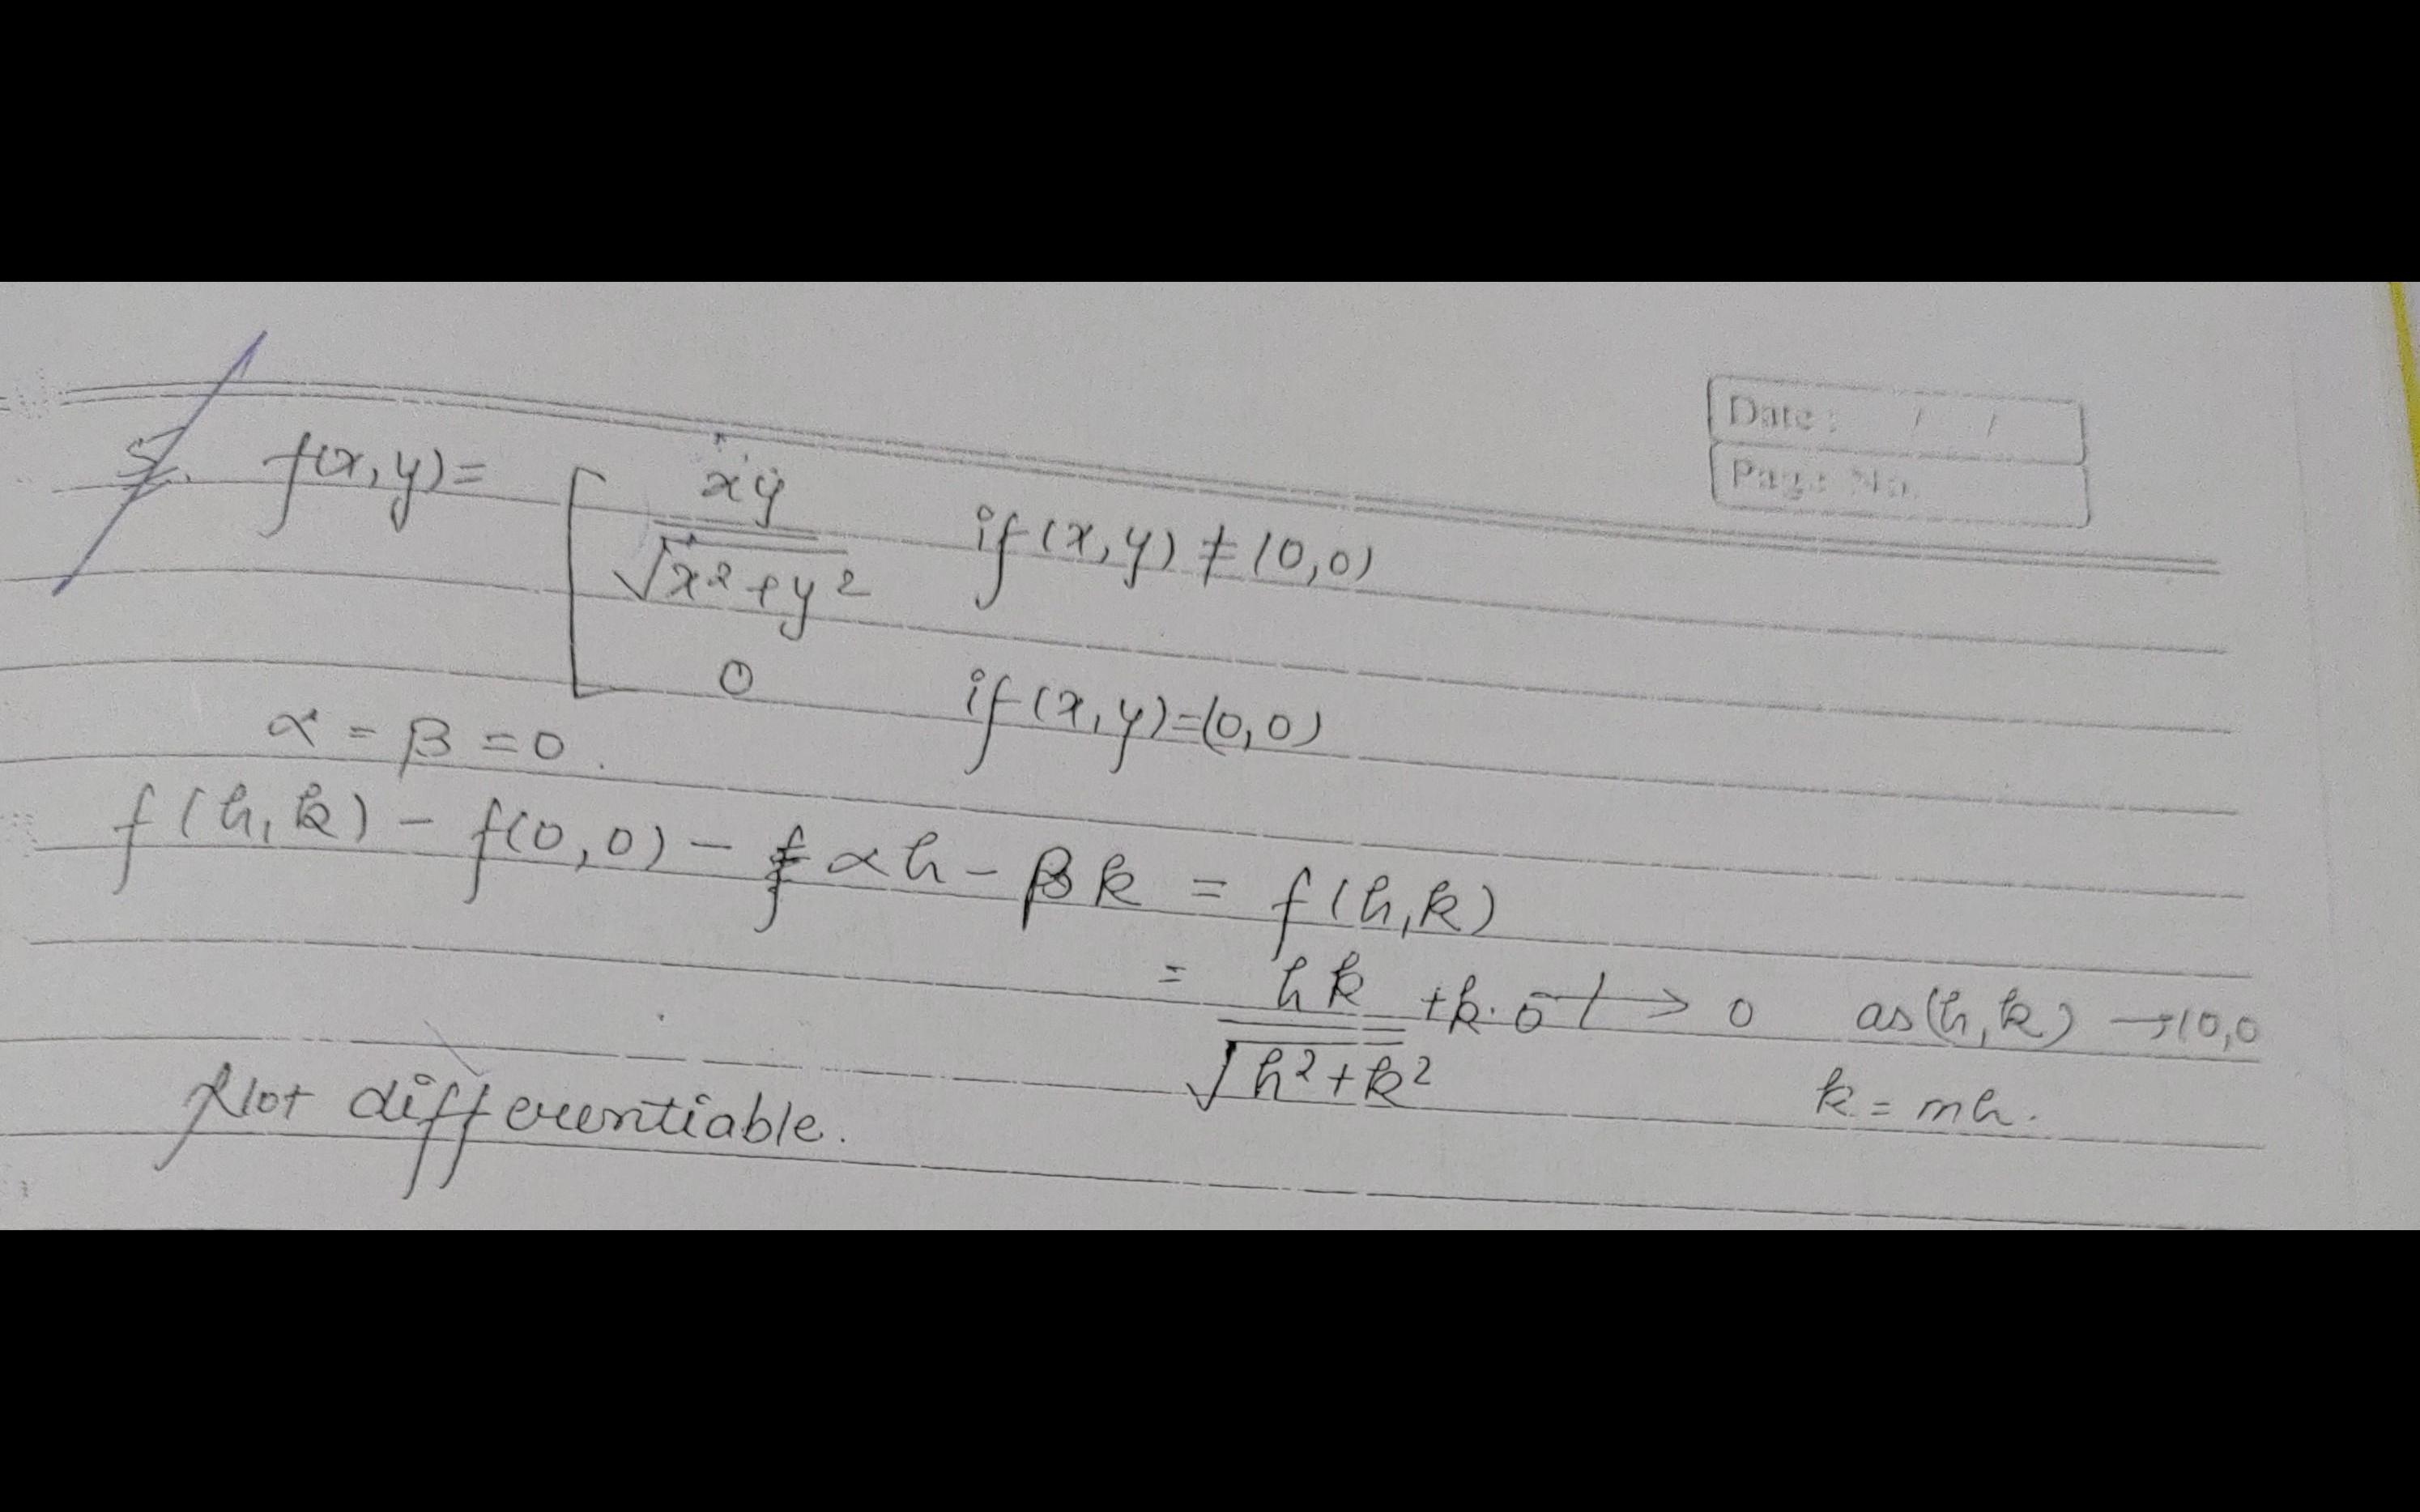 Date : / /
Page No.
5. f(x,y) = [ xy / √x²+y² if (x,y) ≠ (0,0)
0 if (x,y)=(0,0)
α = β = 0.
f(h,k) - f(0,0) - αh - βk = f(h,k)
= hk / √h²+k² +k.0 ↛ 0 as (h,k) → (0,0
k = mh.
Not differentiable.